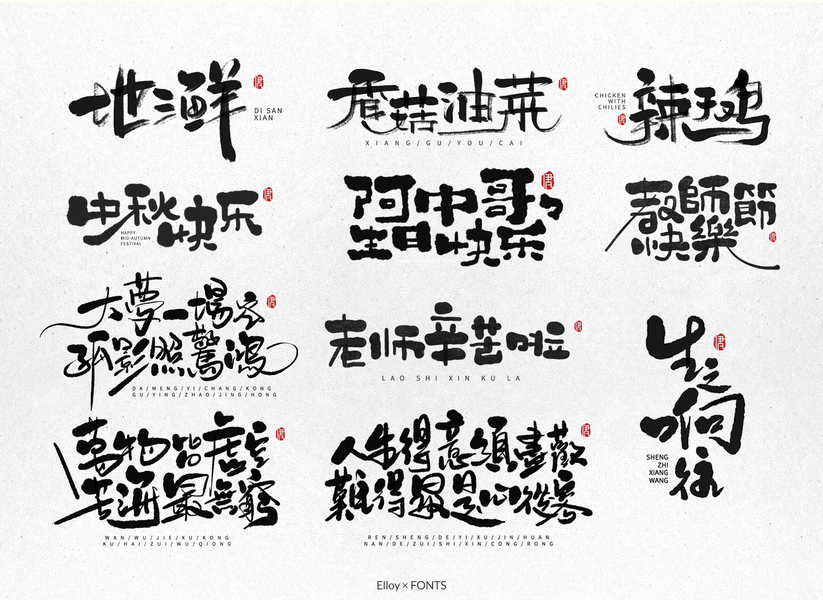 地三鲜
DI SAN
XIAN
香菇油菜
XIANG/GU/YOU/CAI
CHICKEN
WITH
CHILIES
辣子鸡
中秋快乐
HAPPY
MID-AUTUMN
FESTIVAL
阿中哥
生日快乐
教師節
快樂
大夢一場空
孤影照驚鴻
DA/MENG/YI/CHANG/KONG
GU/YING/ZHAO/JING/HONG
老师辛苦啦
LAO SHI XIN KU LA
生之
向往
SHENG
ZHI
XIANG
WANG
萬物皆虛空
苦海最無窮
WAN/WU/JIE/XU/KONG
KU/HAI/ZUI/WU/QIONG
人生得意須盡歡
難得最是心從容
REN/SHENG/DE/YI/XU/JIN/HUAN
NAN/DE/ZUI/SHI/XIN/CONG/RONG
Elloy × FONTS